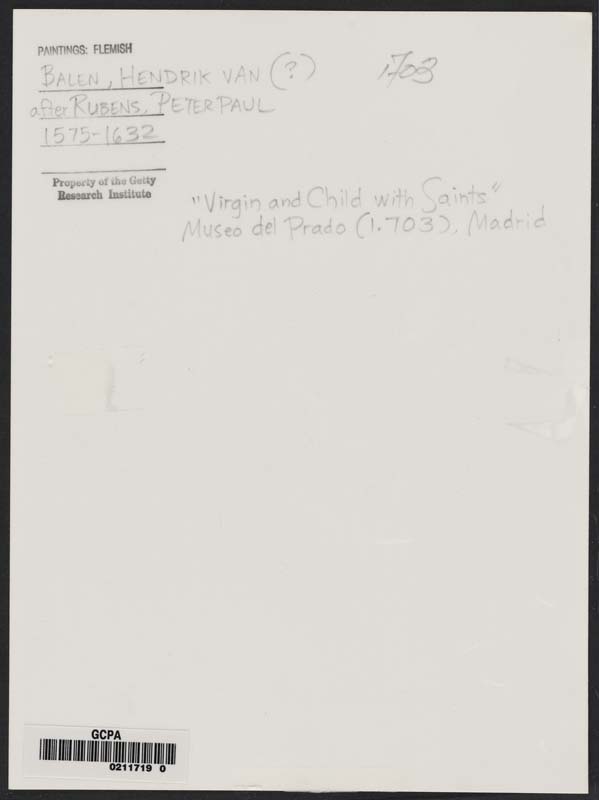 PAINTINGS: FLEMISH
BALEN, HENDRIK VAN (?)
1703
after RUBENS, PETER PAUL
1575-1632
Property of the Getty
Research Institute
"Virgin and Child with Saints"
Museo del Prado (1.703), Madrid
GCPA
0211719 0